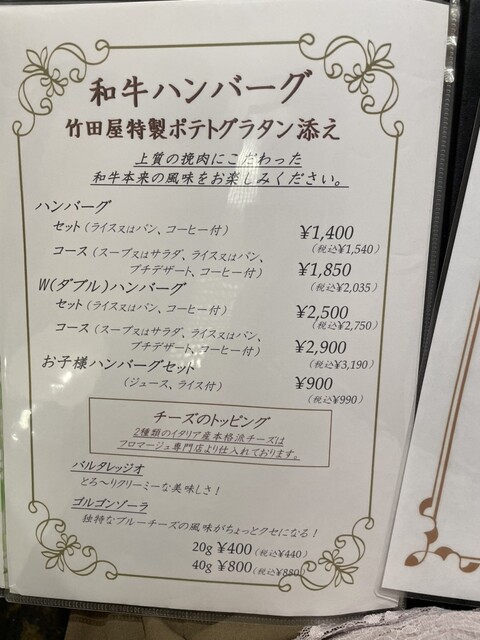 和牛ハンバーグ
竹田屋特製ポテトグラタン添え
上質の挽肉にこだわった
和牛本来の風味をお楽しみください。
ハンバーグ
セット（ライス又はパン、コーヒー付） ¥1,400
(税込¥1,540)
コース（スープ又はサラダ、ライス又はパン、
プチデザート、コーヒー付） ¥1,850
(税込¥2,035)
W(ダブル)ハンバーグ
セット（ライス又はパン、コーヒー付） ¥2,500
(税込¥2,750)
コース（スープ又はサラダ、ライス又はパン、
プチデザート、コーヒー付） ¥2,900
(税込¥3,190)
お子様ハンバーグセット
（ジュース、ライス付） ¥900
(税込¥990)
チーズのトッピング
2種類のイタリア産本格派チーズは
フロマージュ専門店より仕入れております。
バルタレッジオ
とろ～りクリーミーな美味しさ！
ゴルゴンゾーラ
独特なブルーチーズの風味がちょっとクセになる！
20g ¥400(税込¥440)
40g ¥800(税込¥880)